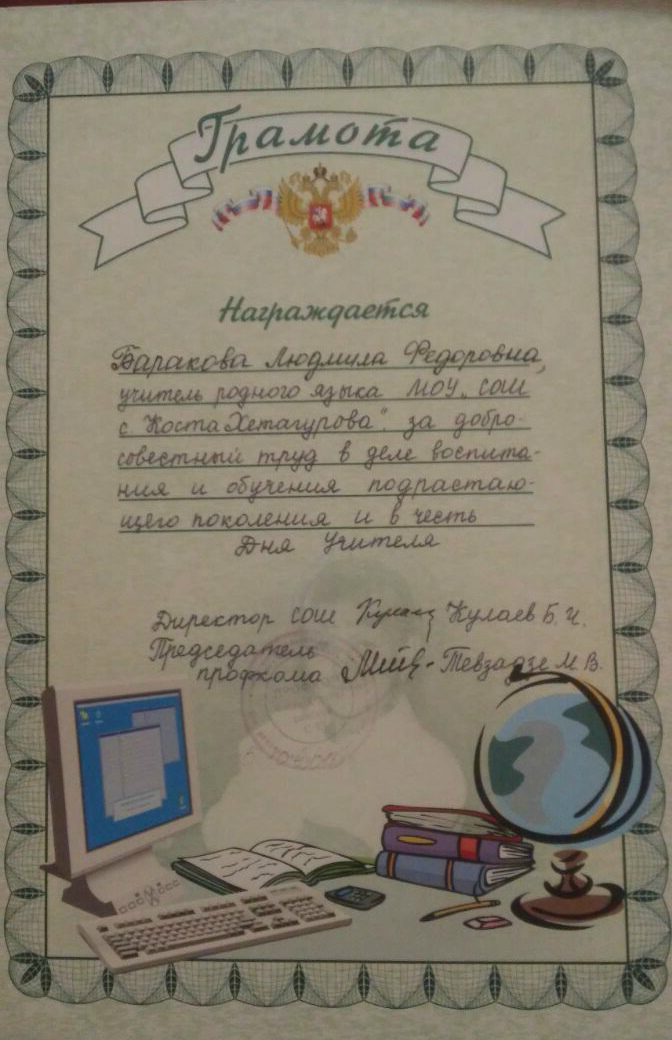 Грамота
Награждается
Баракова Людмила Федоровна,
учитель родного языка МОУ „СОШ
с. Коста Хетагурова". за добро-
совестный труд в деле воспита-
ния и обучения подрастаю-
щего поколения и в честь
Дня Учителя
Директор СОШ Кулаев Б. И.
Председатель
профкома Тевзадзе М. В.